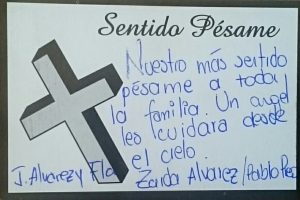 Sentido Pésame
Nuestro más sentido
pésame a toda
la familia. Un angel
les cuidara desde
el cielo.
J. Alvarez y Flo
Zaida Alvarez / Pablo